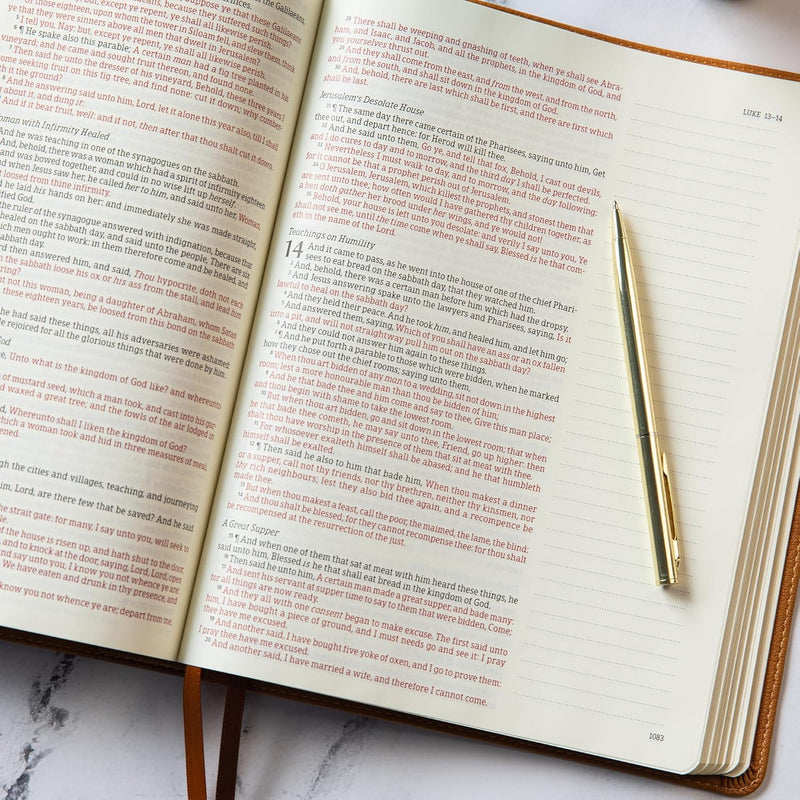 ye that they were sinners above all men that dwelt in Jerusalem?
5 I tell you, Nay: but, except ye repent, ye shall all likewise perish.
6 ¶ He spake also this parable; A certain man had a fig tree planted in his
vineyard; and he came and sought fruit thereon, and found none.
7 Then said he unto the dresser of his vineyard, Behold, these three years I
come seeking fruit on this fig tree, and find none: cut it down; why cumber-
th it the ground?
8 And he answering said unto him, Lord, let it alone this year also, till I shall
about it, and dung it:
9 And if it bear fruit, well: and if not, then after that thou shalt cut it down.
oman with Infirmity Healed
And he was teaching in one of the synagogues on the sabbath.
And, behold, there was a woman which had a spirit of infirmity eighteen
and was bowed together, and could in no wise lift up herself.
when Jesus saw her, he called her to him, and said unto her, Woman,
loosed from thine infirmity.
he laid his hands on her: and immediately she was made straight,
ified God.
the ruler of the synagogue answered with indignation, because that
healed on the sabbath day, and said unto the people, There are six
which men ought to work: in them therefore come and be healed, and
abbath day.
rd then answered him, and said, Thou hypocrite, doth not each
the sabbath loose his ox or his ass from the stall, and lead him
ring?
t not this woman, being a daughter of Abraham, whom Satan
these eighteen years, be loosed from this bond on the sabbath
he had said these things, all his adversaries were ashamed:
e rejoiced for all the glorious things that were done by him.
od
e, Unto what is the kingdom of God like? and whereunto
of mustard seed, which a man took, and cast into his gar-
waxed a great tree; and the fowls of the air lodged in
Whereunto shall I liken the kingdom of God?
which a woman took and hid in three measures of meal,
ened.
gh the cities and villages, teaching, and journeying
him, Lord, are there few that be saved? And he said
e strait gate: for many, I say unto you, will seek to
le.
of the house is risen up, and hath shut to the door
and to knock at the door, saying, Lord, Lord, open
and say unto you, I know you not whence ye are:
We have eaten and drunk in thy presence, and
know you not whence ye are; depart from me,
LUKE 13–14
28 There shall be weeping and gnashing of teeth, when ye shall see Abra-
ham, and Isaac, and Jacob, and all the prophets, in the kingdom of God, and
you yourselves thrust out.
29 And they shall come from the east, and from the west, and from the north,
and from the south, and shall sit down in the kingdom of God.
30 And, behold, there are last which shall be first, and there are first which
shall be last.
Jerusalem's Desolate House
31 ¶ The same day there came certain of the Pharisees, saying unto him, Get
thee out, and depart hence: for Herod will kill thee.
32 And he said unto them, Go ye, and tell that fox, Behold, I cast out devils,
and I do cures to day and to morrow, and the third day I shall be perfected.
33 Nevertheless I must walk to day, and to morrow, and the day following:
for it cannot be that a prophet perish out of Jerusalem.
34 O Jerusalem, Jerusalem, which killest the prophets, and stonest them that
are sent unto thee; how often would I have gathered thy children together, as
a hen doth gather her brood under her wings, and ye would not!
35 Behold, your house is left unto you desolate: and verily I say unto you, Ye
shall not see me, until the time come when ye shall say, Blessed is he that com-
eth in the name of the Lord.
Teachings on Humility
14 And it came to pass, as he went into the house of one of the chief Phari-
sees to eat bread on the sabbath day, that they watched him.
2 And, behold, there was a certain man before him which had the dropsy.
3 And Jesus answering spake unto the lawyers and Pharisees, saying, Is it
lawful to heal on the sabbath day?
4 And they held their peace. And he took him, and healed him, and let him go;
5 And answered them, saying, Which of you shall have an ass or an ox fallen
into a pit, and will not straightway pull him out on the sabbath day?
6 And they could not answer him again to these things.
7 ¶ And he put forth a parable to those which were bidden, when he marked
how they chose out the chief rooms; saying unto them,
8 When thou art bidden of any man to a wedding, sit not down in the highest
room; lest a more honourable man than thou be bidden of him;
9 And he that bade thee and him come and say to thee, Give this man place;
and thou begin with shame to take the lowest room.
10 But when thou art bidden, go and sit down in the lowest room; that when
he that bade thee cometh, he may say unto thee, Friend, go up higher: then
shalt thou have worship in the presence of them that sit at meat with thee.
11 For whosoever exalteth himself shall be abased; and he that humbleth
himself shall be exalted.
12 ¶ Then said he also to him that bade him, When thou makest a dinner
or a supper, call not thy friends, nor thy brethren, neither thy kinsmen, nor
thy rich neighbours; lest they also bid thee again, and a recompence be
made thee.
13 But when thou makest a feast, call the poor, the maimed, the lame, the blind:
14 And thou shalt be blessed; for they cannot recompense thee: for thou shalt
be recompensed at the resurrection of the just.
A Great Supper
15 ¶ And when one of them that sat at meat with him heard these things, he
said unto him, Blessed is he that shall eat bread in the kingdom of God.
16 Then said he unto him, A certain man made a great supper, and bade many:
17 And sent his servant at supper time to say to them that were bidden, Come;
for all things are now ready.
18 And they all with one consent began to make excuse. The first said unto
him, I have bought a piece of ground, and I must needs go and see it: I pray
thee have me excused.
19 And another said, I have bought five yoke of oxen, and I go to prove them:
I pray thee have me excused.
20 And another said, I have married a wife, and therefore I cannot come.
1083